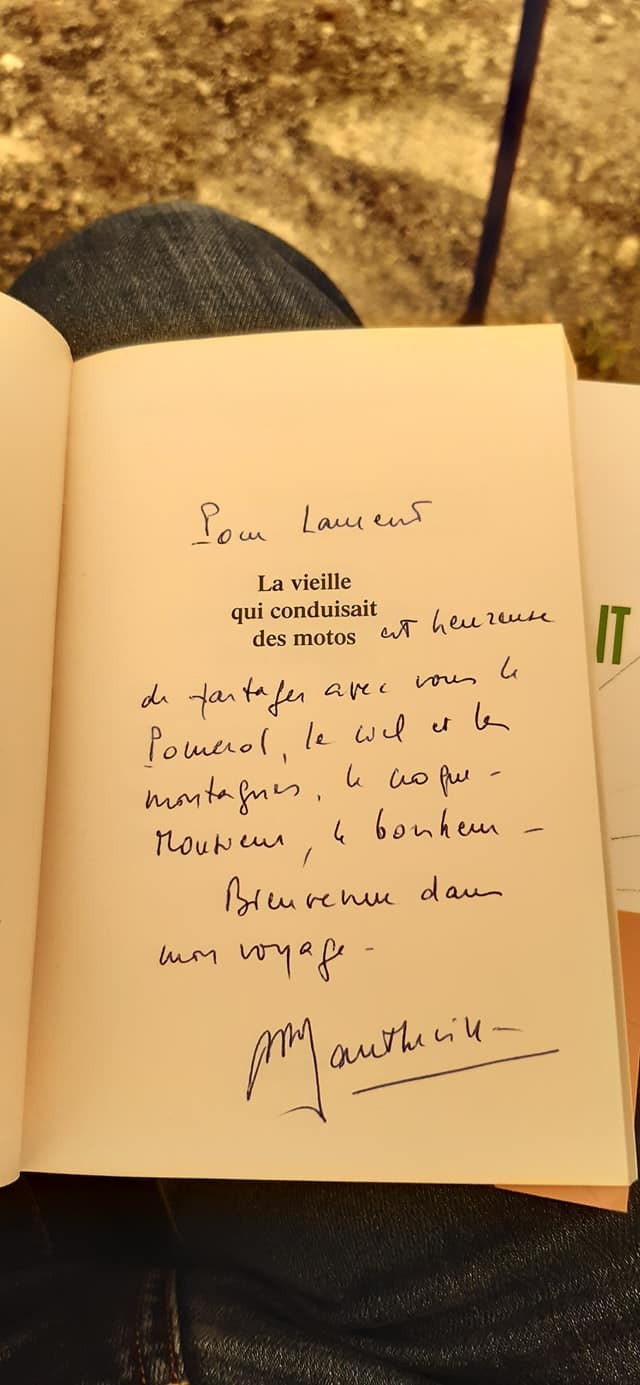 Pour Laurent
La vieille
qui conduisait
des motos est heureuse
de partager avec vous le
Pomerol, le ciel et les
montagnes, le croque-
Monsieur, le bonheur -
Bienvenue dans
mon voyage -
IT